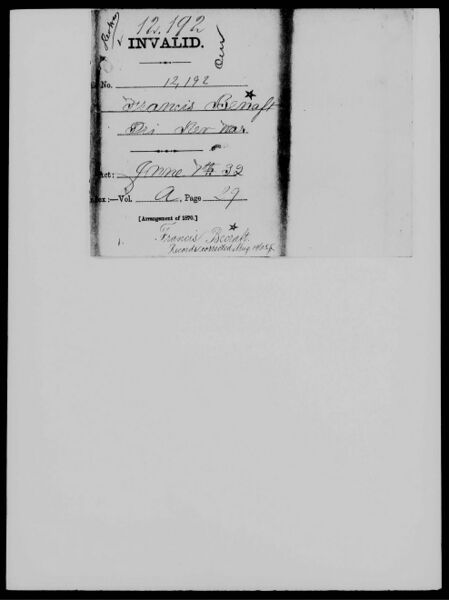 12.192
INVALID.
No. 12,192
Francis Becraft
Rev War
Act: June 7th 32
Index:—Vol. A, Page 29
[Arrangement of 1870.]
Francis Becraft.
Records corrected Aug